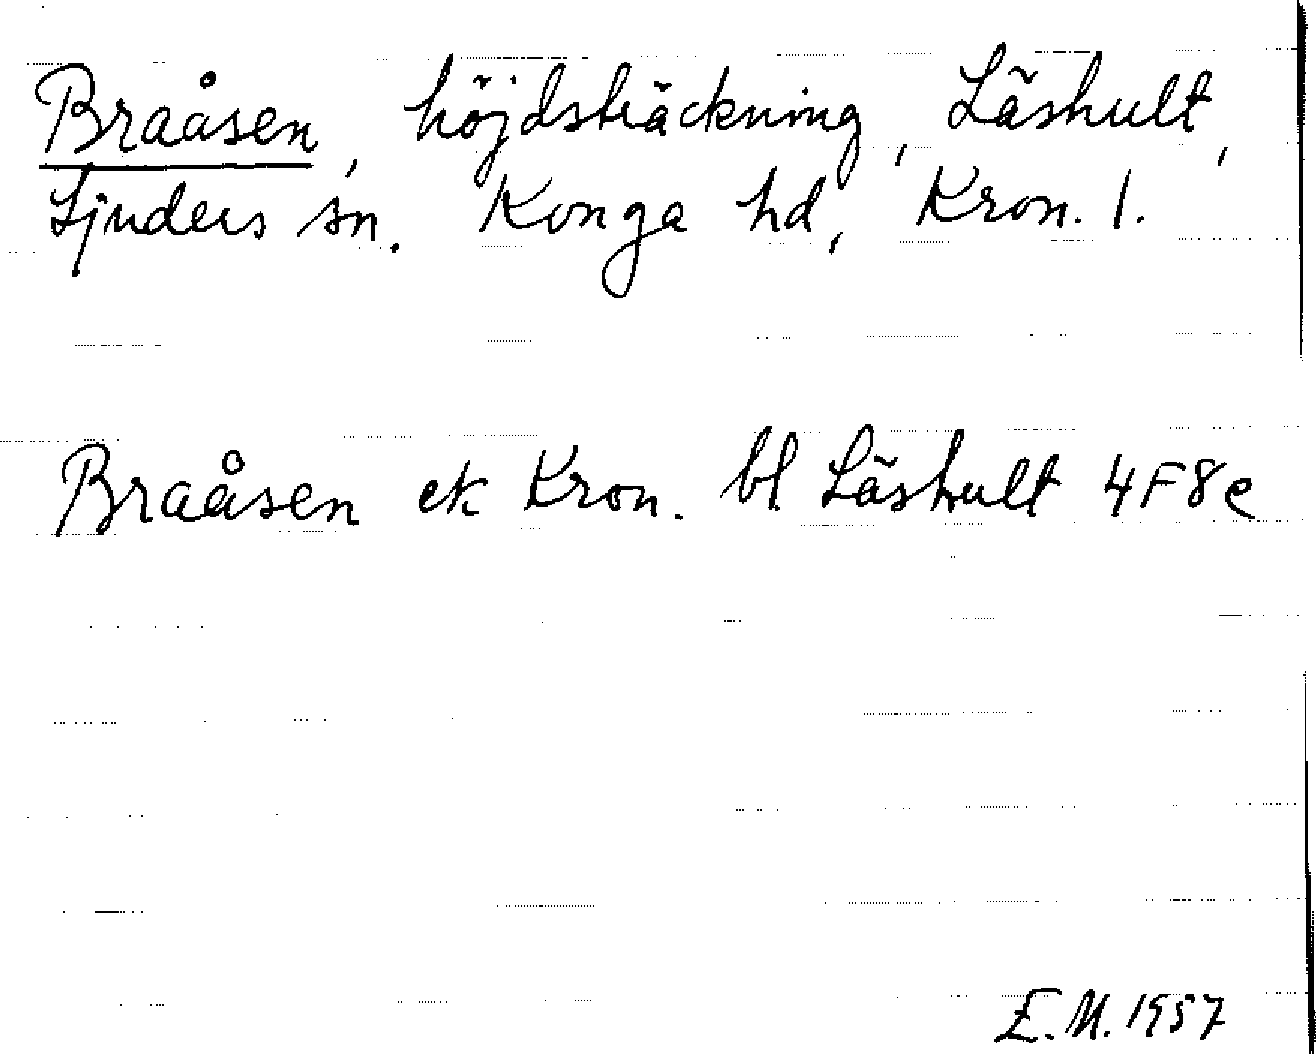 Braåsen, höjdsträckning, Läshult,
Ljuders sn. Konga hd, Kron. l.
Braåsen ek Kron. bl Läshult 4F8e
E.M. 1957